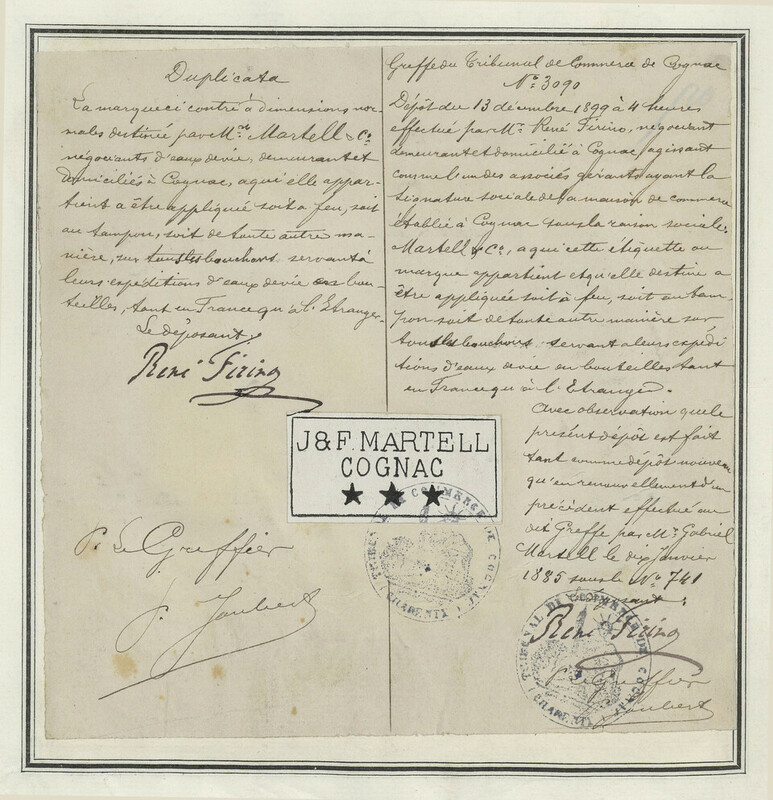 Duplicata
La marque ci contre à dimensions nor-
males destinée par M.rs Martell & Co
négociants d'eaux devie, demeurant et
domiciliés à Cognac, a qui elle appar-
tient a être appliquée soit a feu, soit
au tampon, soit de toute autre ma-
nière, sur tous les bouchons servant à
leurs expéditions d'eaux devie en bou-
teilles, tant en France qu'à l'Etranger.
Le déposant:
René Firino
P. Le Greffier
J. Joubert
Greffe du Tribunal de Commerce de Cognac
No 3090
Dépôt du 13 décembre 1899 à 4 heures
effectué par Mr. René Firino, négociant
demeurant et domicilié à Cognac, agissant
comme l'un des associés gérants ayant la
signature sociale de la maison de commerce
établie à Cognac sous la raison sociale:
Martell & Co, a qui cette étiquette ou
marque appartient et qu'elle destine a
être appliquée soit à feu, soit au tam-
pon soit de toute autre manière sur
tous les bouchons servant a leurs expédi
tions d'eaux devie en bouteilles tant
en France qu'à l'Etranger.
Avec observation que le
présent dépôt est fait
tant comme dépôt nouveau
qu'en renouvellement d'un
précédent effectué au
dit Greffe par Mr. Gabriel
Martell le dix Janvier
1885 sous le No 741
René Firino
P. Le Greffier
Joubert
J & F. MARTELL
COGNAC
★ ★ ★
TRIBUNAL DE COMMERCE DE COGNAC
(CHARENTE)
TRIBUNAL DE COMMERCE DE COGNAC
(CHARENTE)